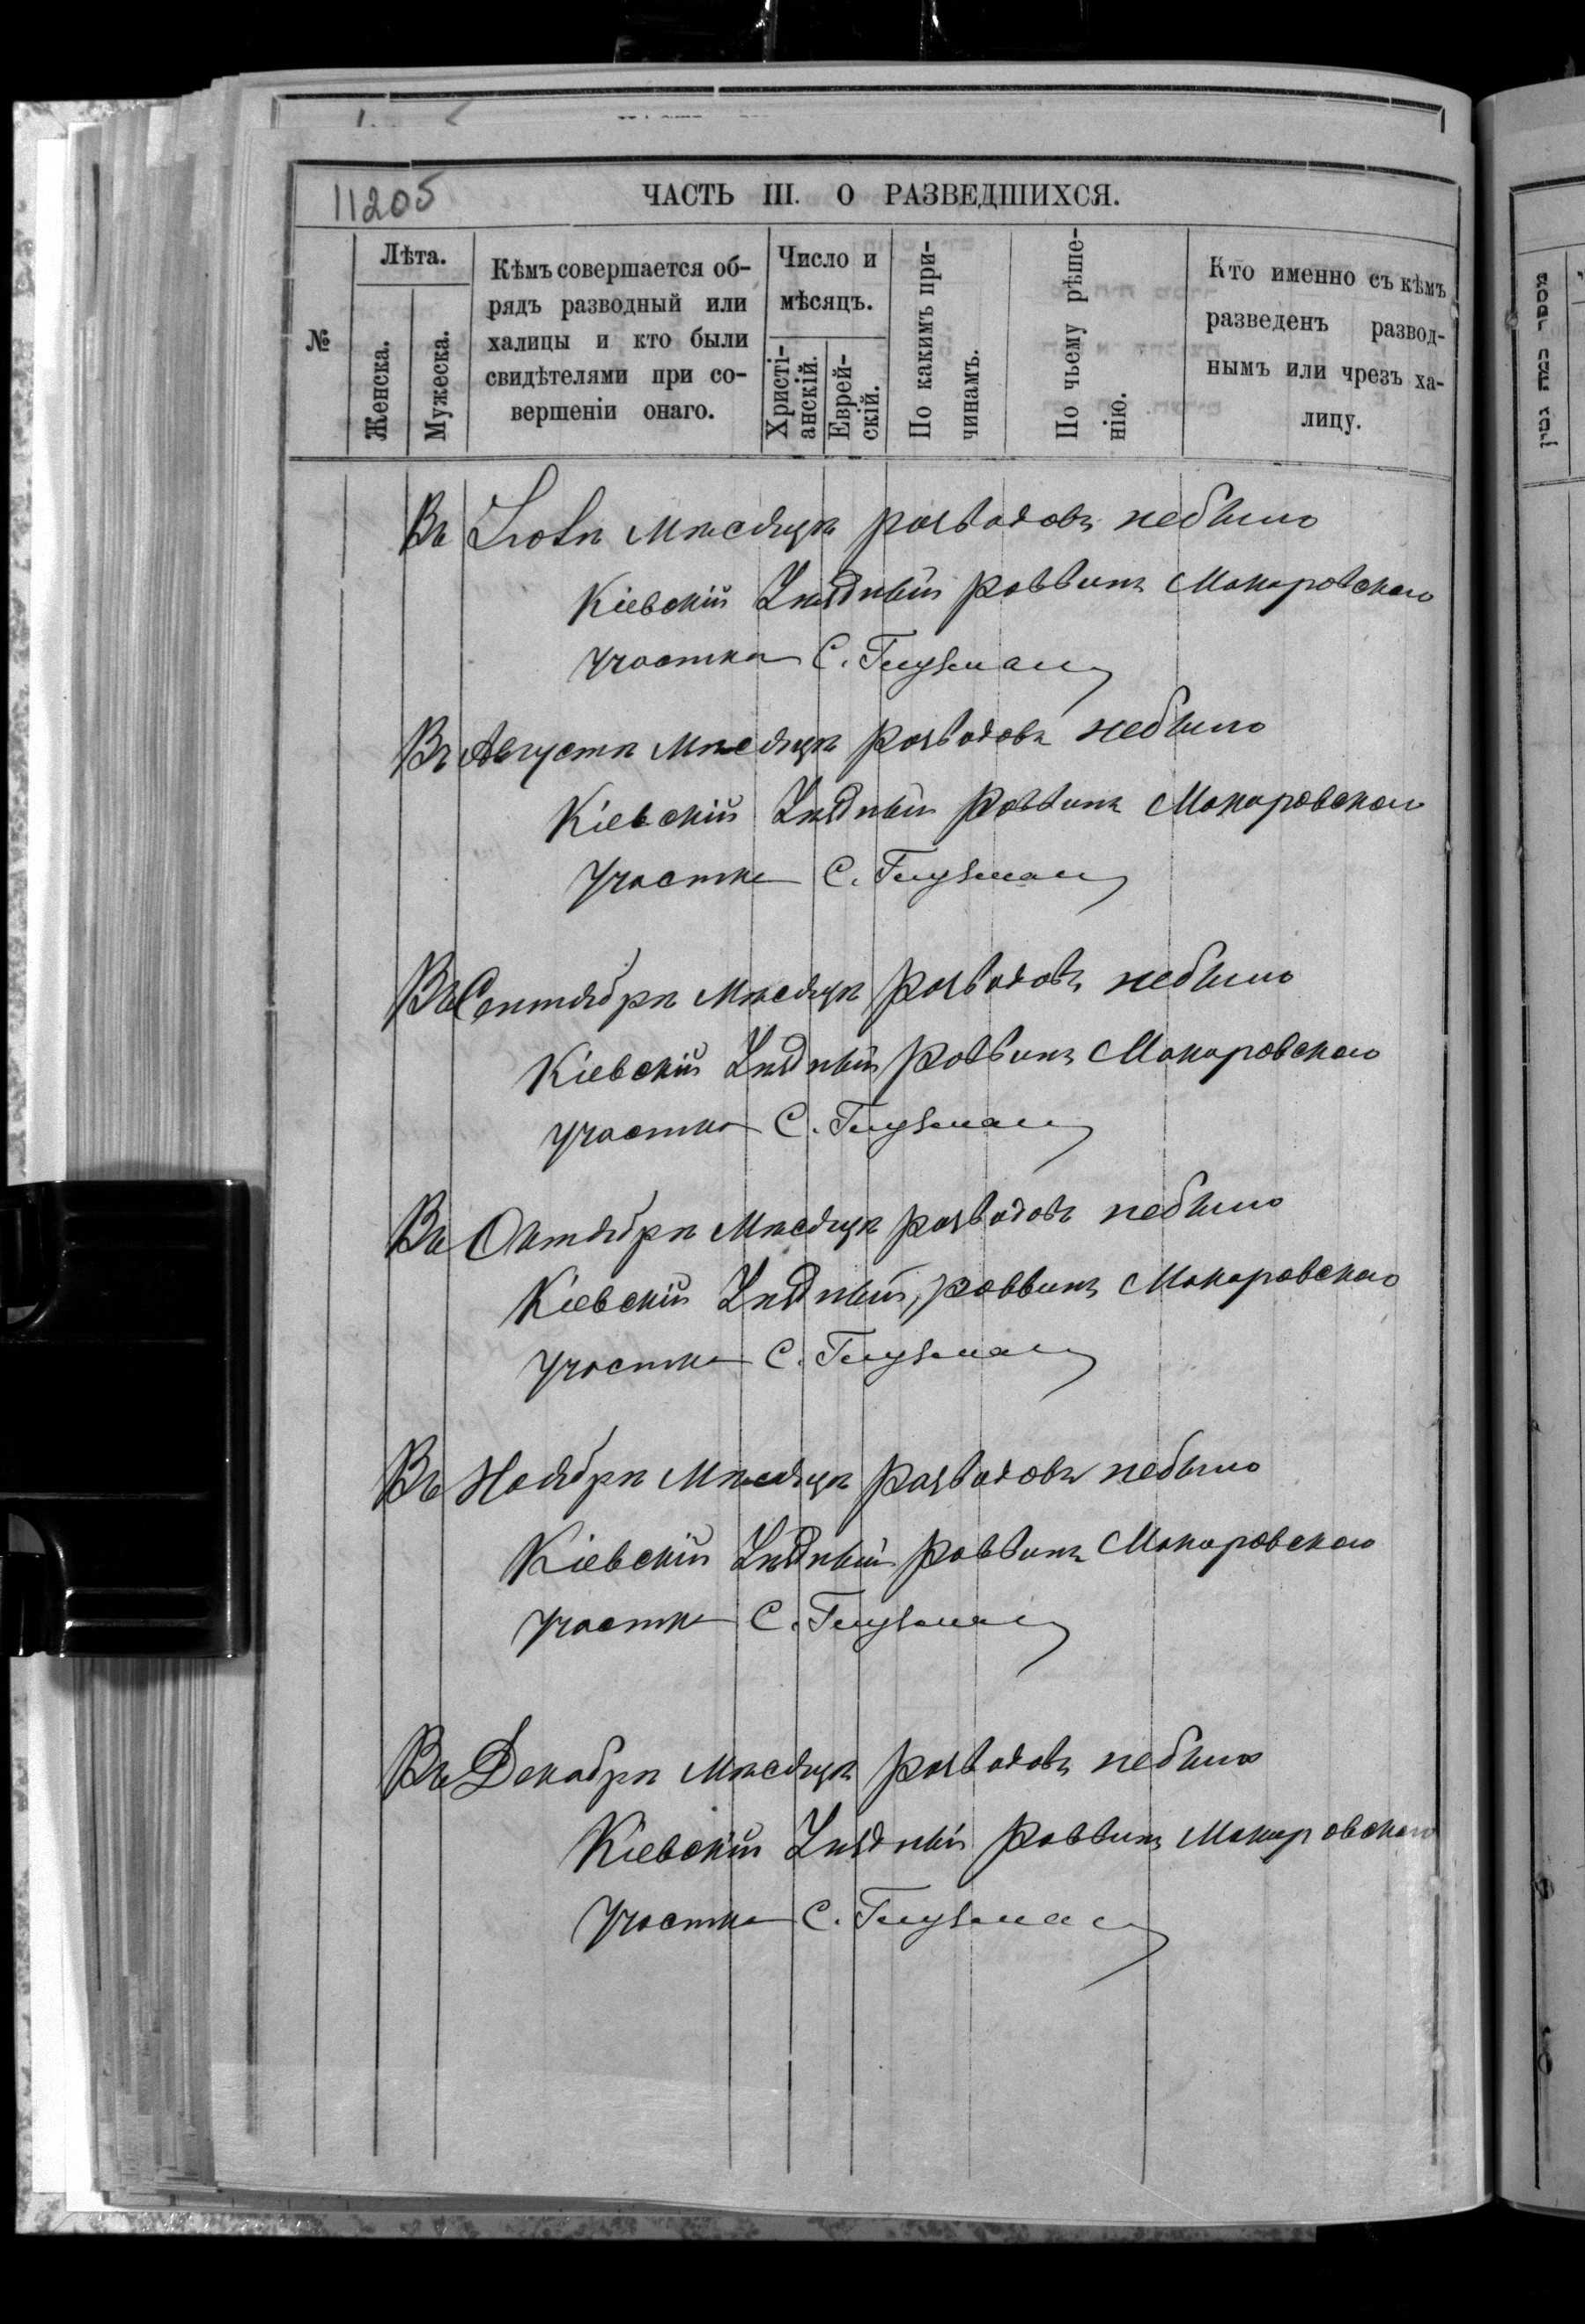 11205
ЧАСТЬ III. О РАЗВЕДШИХСЯ.
№
Лѣта.
Женска.
Мужеска.
Кѣмъ совершается об-
рядъ разводный или
халицы и кто были
свидѣтелями при со-
вершеніи онаго.
Число и
мѣсяцъ.
Христі-
анскій.
Еврей-
скій.
По какимъ при-
чинамъ.
По чьему рѣше-
нію.
Кто именно съ кѣмъ
разведенъ развод-
нымъ или чрезъ ха-
лицу.
Въ мѣсяцѣ разводовъ небыло
Кіевскій Уѣздный раввинъ Макаровскаго
участка С.
Въ Августѣ мѣсяцѣ разводовъ небыло
Кіевскій Уѣздный раввинъ Макаровскаго
участка С.
Въ Сентябрѣ мѣсяцѣ разводовъ небыло
Кіевскій Уѣздный раввинъ Макаровскаго
участка С.
Въ Октябрѣ мѣсяцѣ разводовъ небыло
Кіевскій Уѣздный раввинъ Макаровскаго
участка С.
Въ Ноябрѣ мѣсяцѣ разводовъ небыло
Кіевскій Уѣздный раввинъ Макаровскаго
участка С.
Въ Декабрѣ мѣсяцѣ разводовъ небыло
Кіевскій Уѣздный раввинъ Макаровскаго
участка С.
מספר כמה גטין